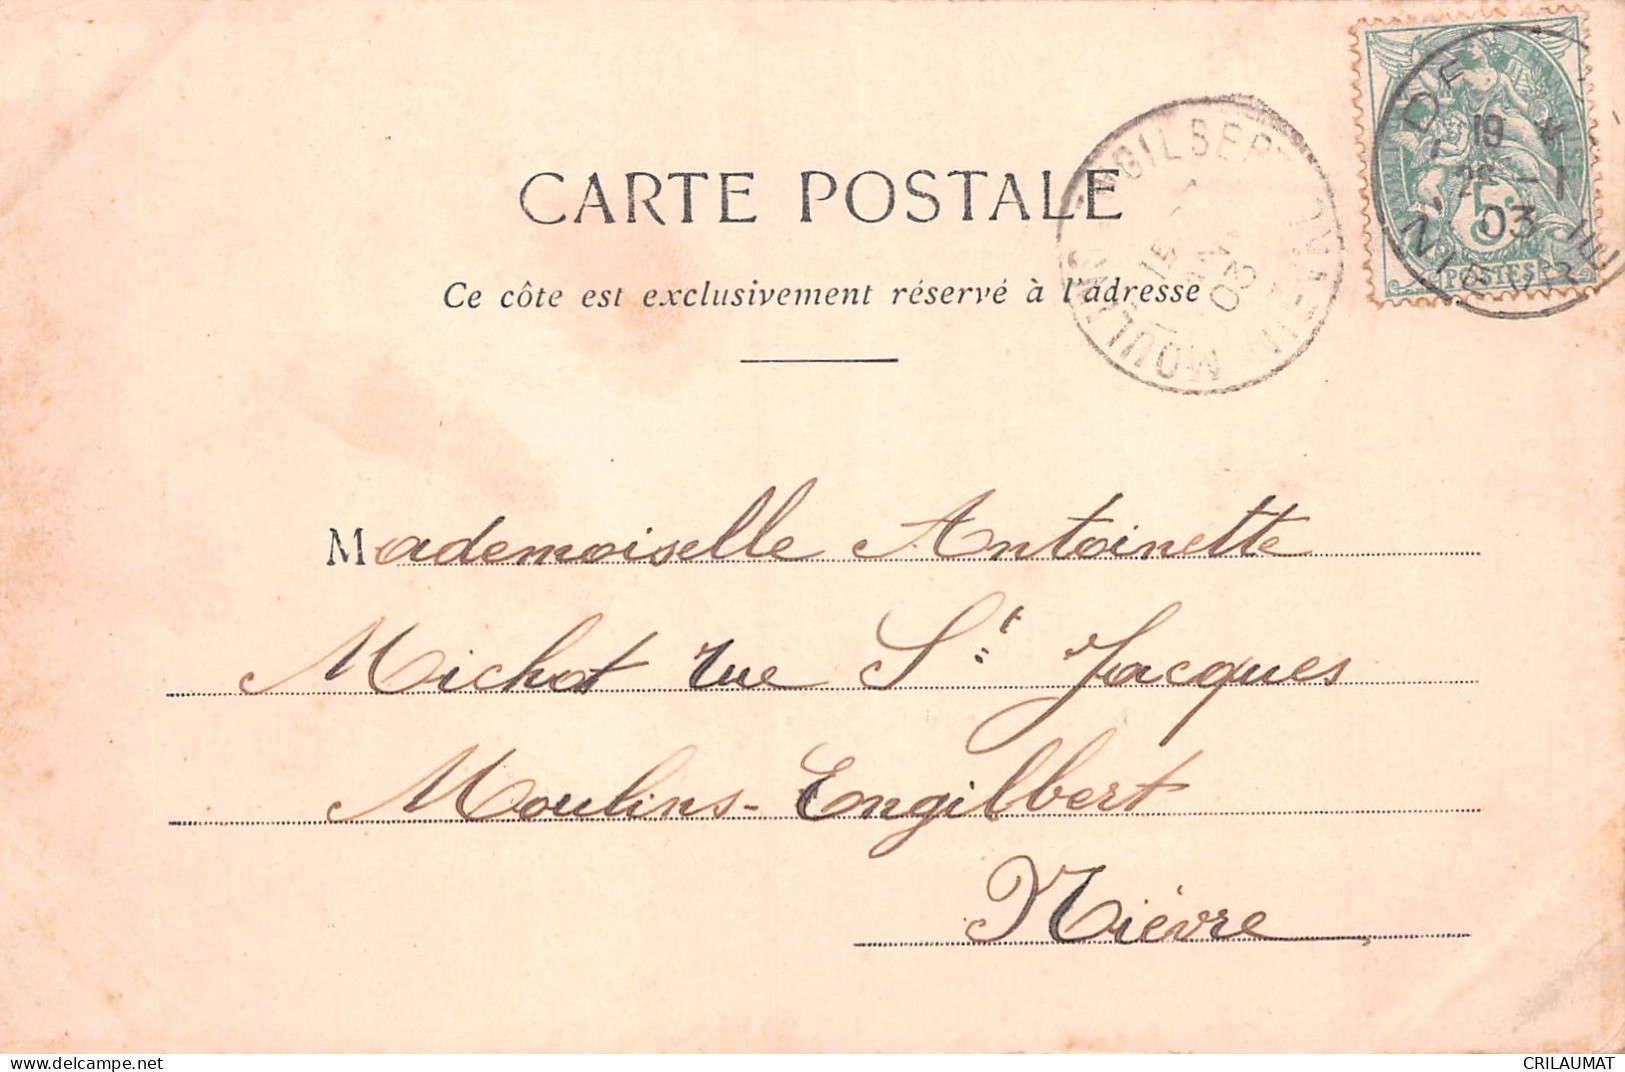 CARTE POSTALE
Ce côte est exclusivement réservé à l'adresse
Mademoiselle Antoinette
Michot rue St Jacques
Moulins-Engilbert
Nièvre
19 *
03
NIEVRE
5
POSTES
15
03
MOULINS-ENGILBERT
delcampe.net
CRILAUMAT